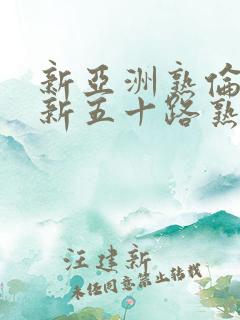 新亞洲熟倫
新五十路熟
汪建新
未经同意禁止转载